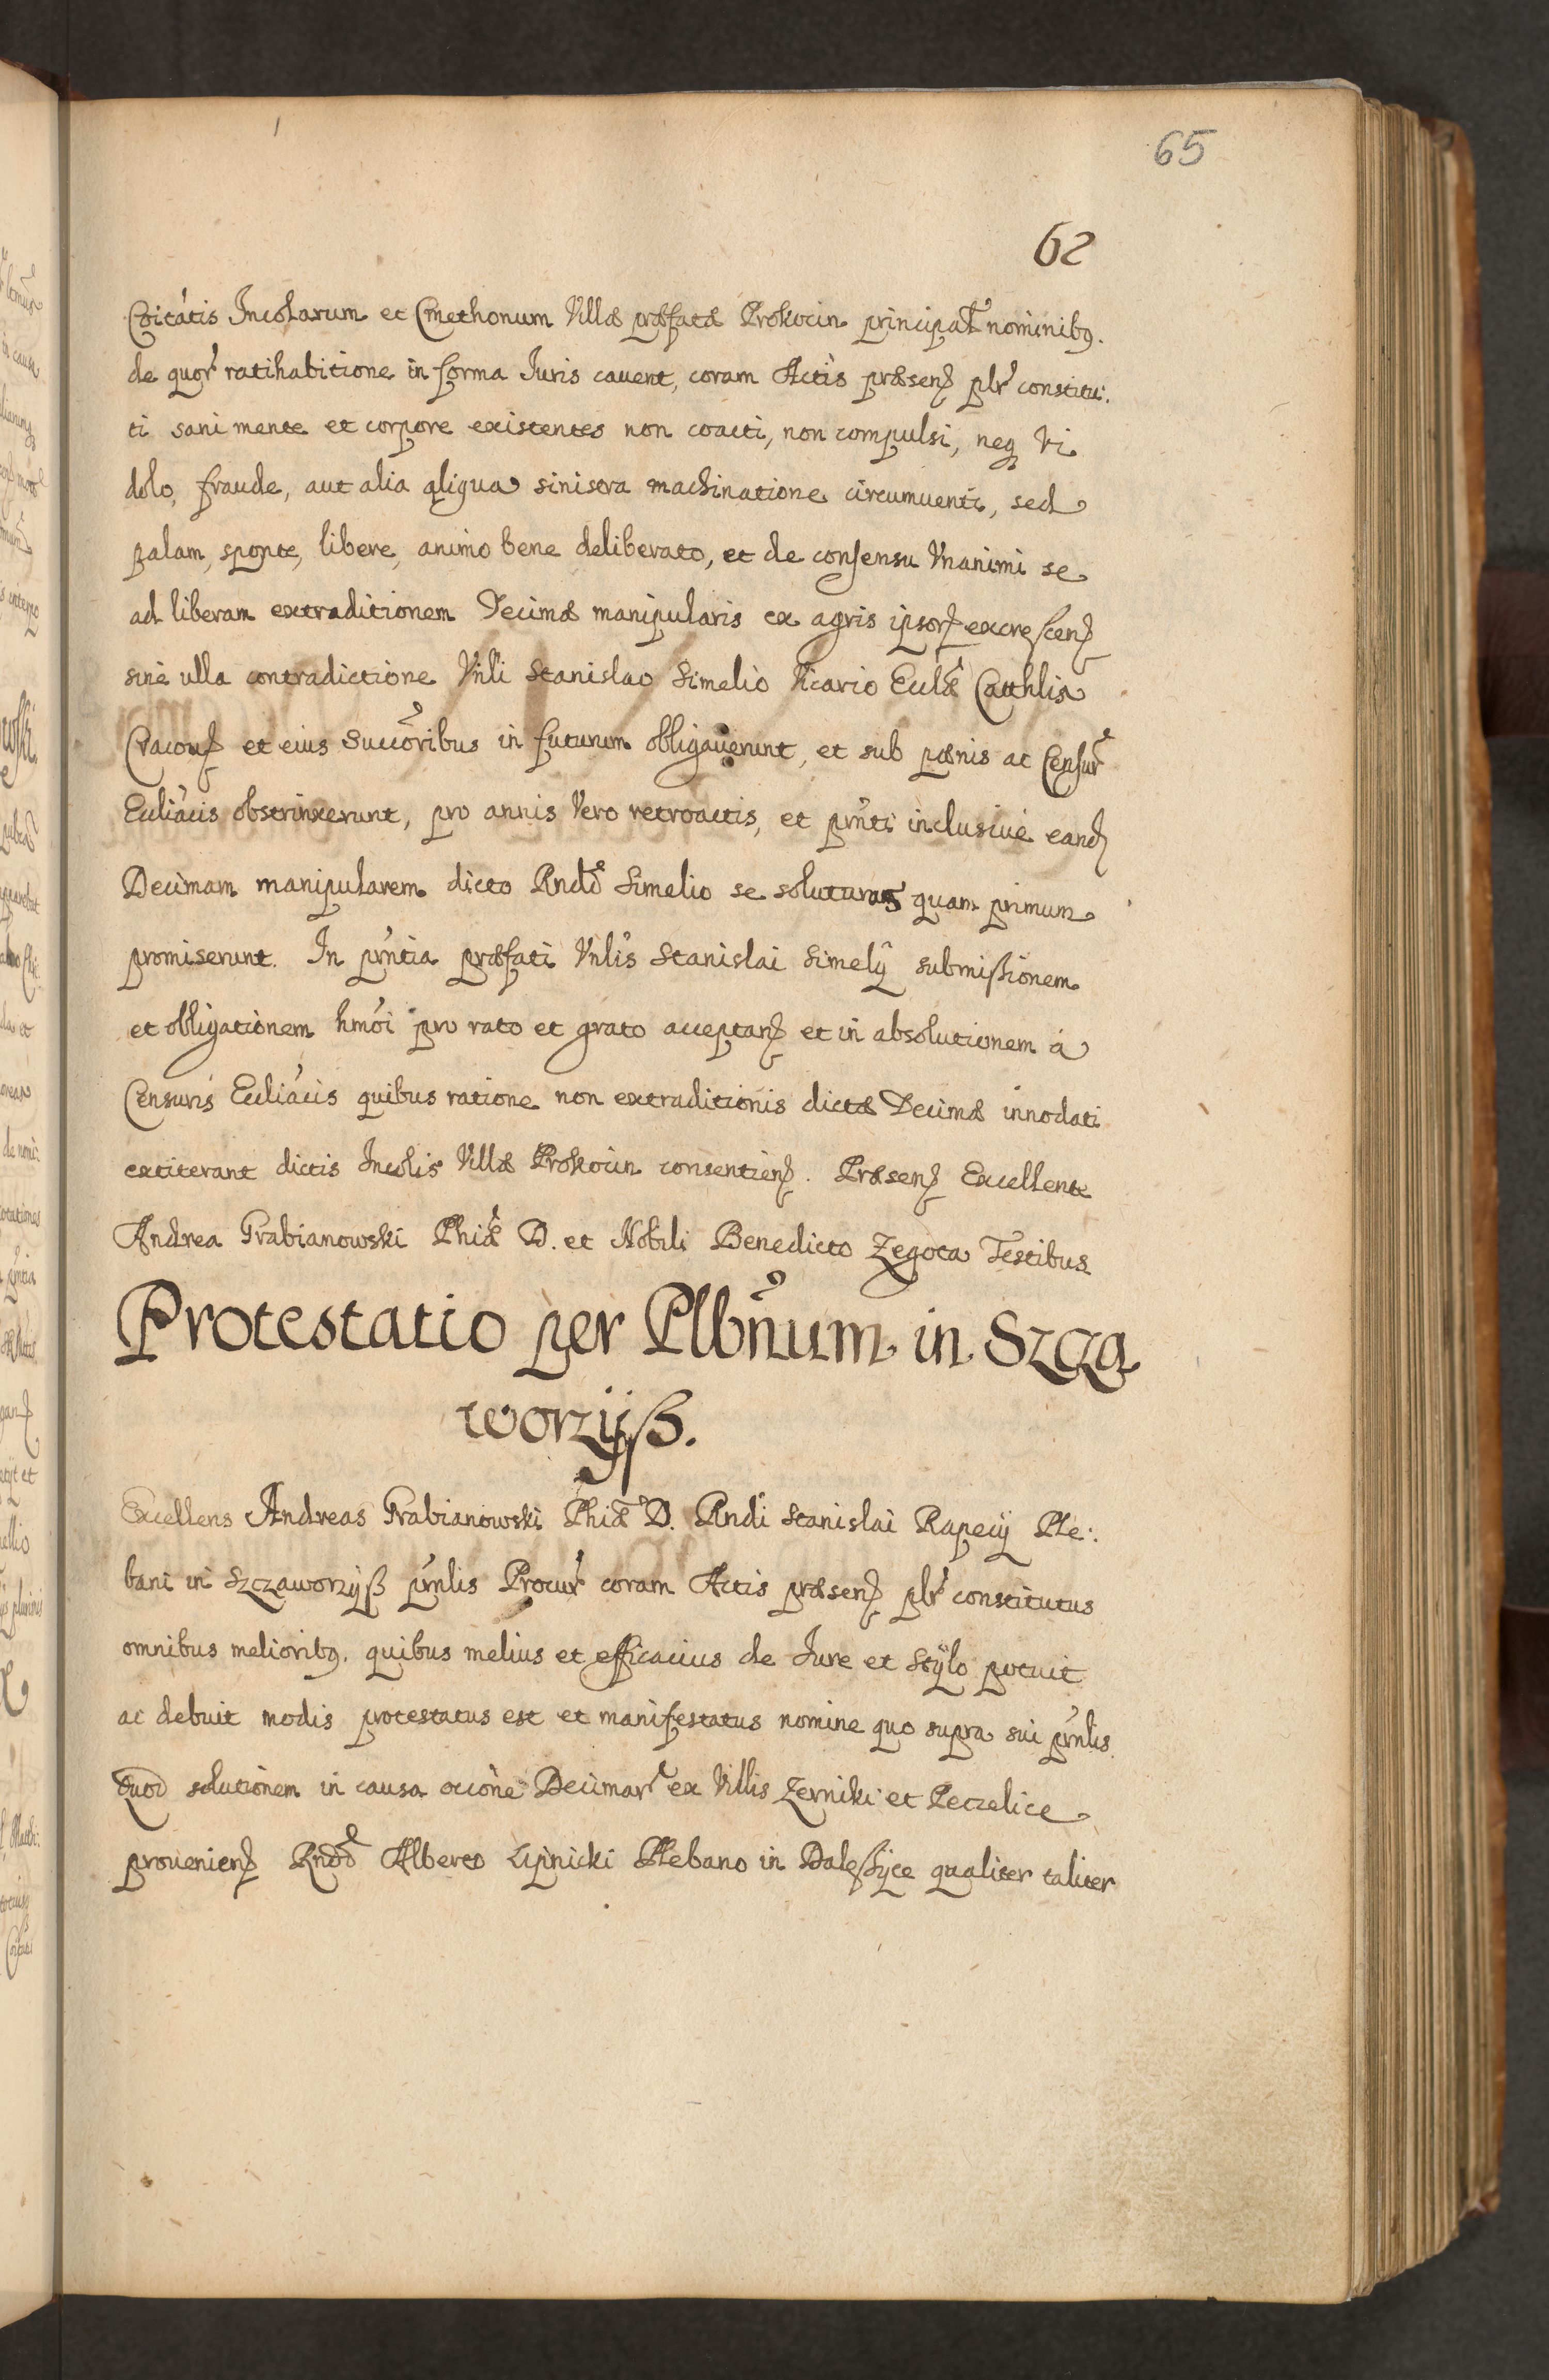 65
62
Coitatis Incolarum et Cmethonum Villæ præfatæ Prokocin principal nominibq.
de quor ratihabitione in forma Iuris cauent, coram Actis præsen plr constitu:
ti sani mente et corpore existentes non coacti, non compulsi, neq Vi
dolo, fraude, aut alia qliqua sinistra machinatione circumuenti, sed
palam, sponte, libere, animo bene deliberato, et de consensu Vnanimi se
ad liberam extraditionem Decimæ manipularis ex agris ipsor excrescen
sine ulla contradictione Vnli Stanislao Simelio Vicario Eclæ Catthlis
Cracou et eius Succoribus in futurum obligauerunt, et sub pænis ac Censur
Eccliacis obstrinxerunt, pro annis Vero retroactis, et prnti inclusiue eand
Decimam manipularem dicto Rndo Simelio se soluturos quam primum
promiserunt. In prntia præfati Vnlis Stanislai Simelÿ submißionem
et obligationem hmoi pro rato et grato acceptan et in absolutionem á
Censuris Eccliacis quibus ratione non extraditionis dictæ Decimæ innodati
extiterant dictis Incolis Villæ Prokocin consentien. Præsen Excellente
Andrea Grabianowski Phiæ D. et Nobili Benedicto Zegota Testibus
Protestatio per Plbnum in Szcza
worzÿß.
Excellens Andreas Grabianowski Phiæ D. Rndi Stanislai Rapecÿ Ple:
bani in Szczaworzÿß prnlis Procur coram Actis præsen plr constitutus
omnibus melioribq. quibus melius et efficacius de Iure et Stÿlo potuit
ac debuit modis protestatus est et manifestatus nomine quo supra sui prnlis
Quod solutionem in causa occone Decimar ex Villis Zerniki et Peczelice
prouenien Rndo Alberto Lipnicki Plebano in Daleßÿce qualiter taliter